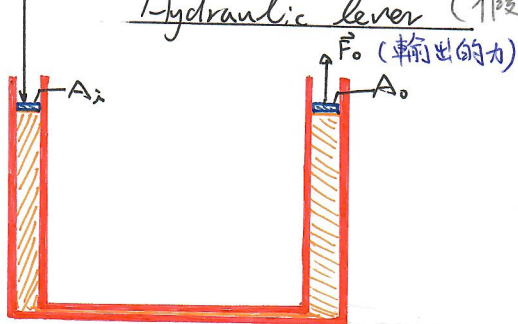 Hydraulic lever (
F⃗o (輸出的力)
Ai
Ao